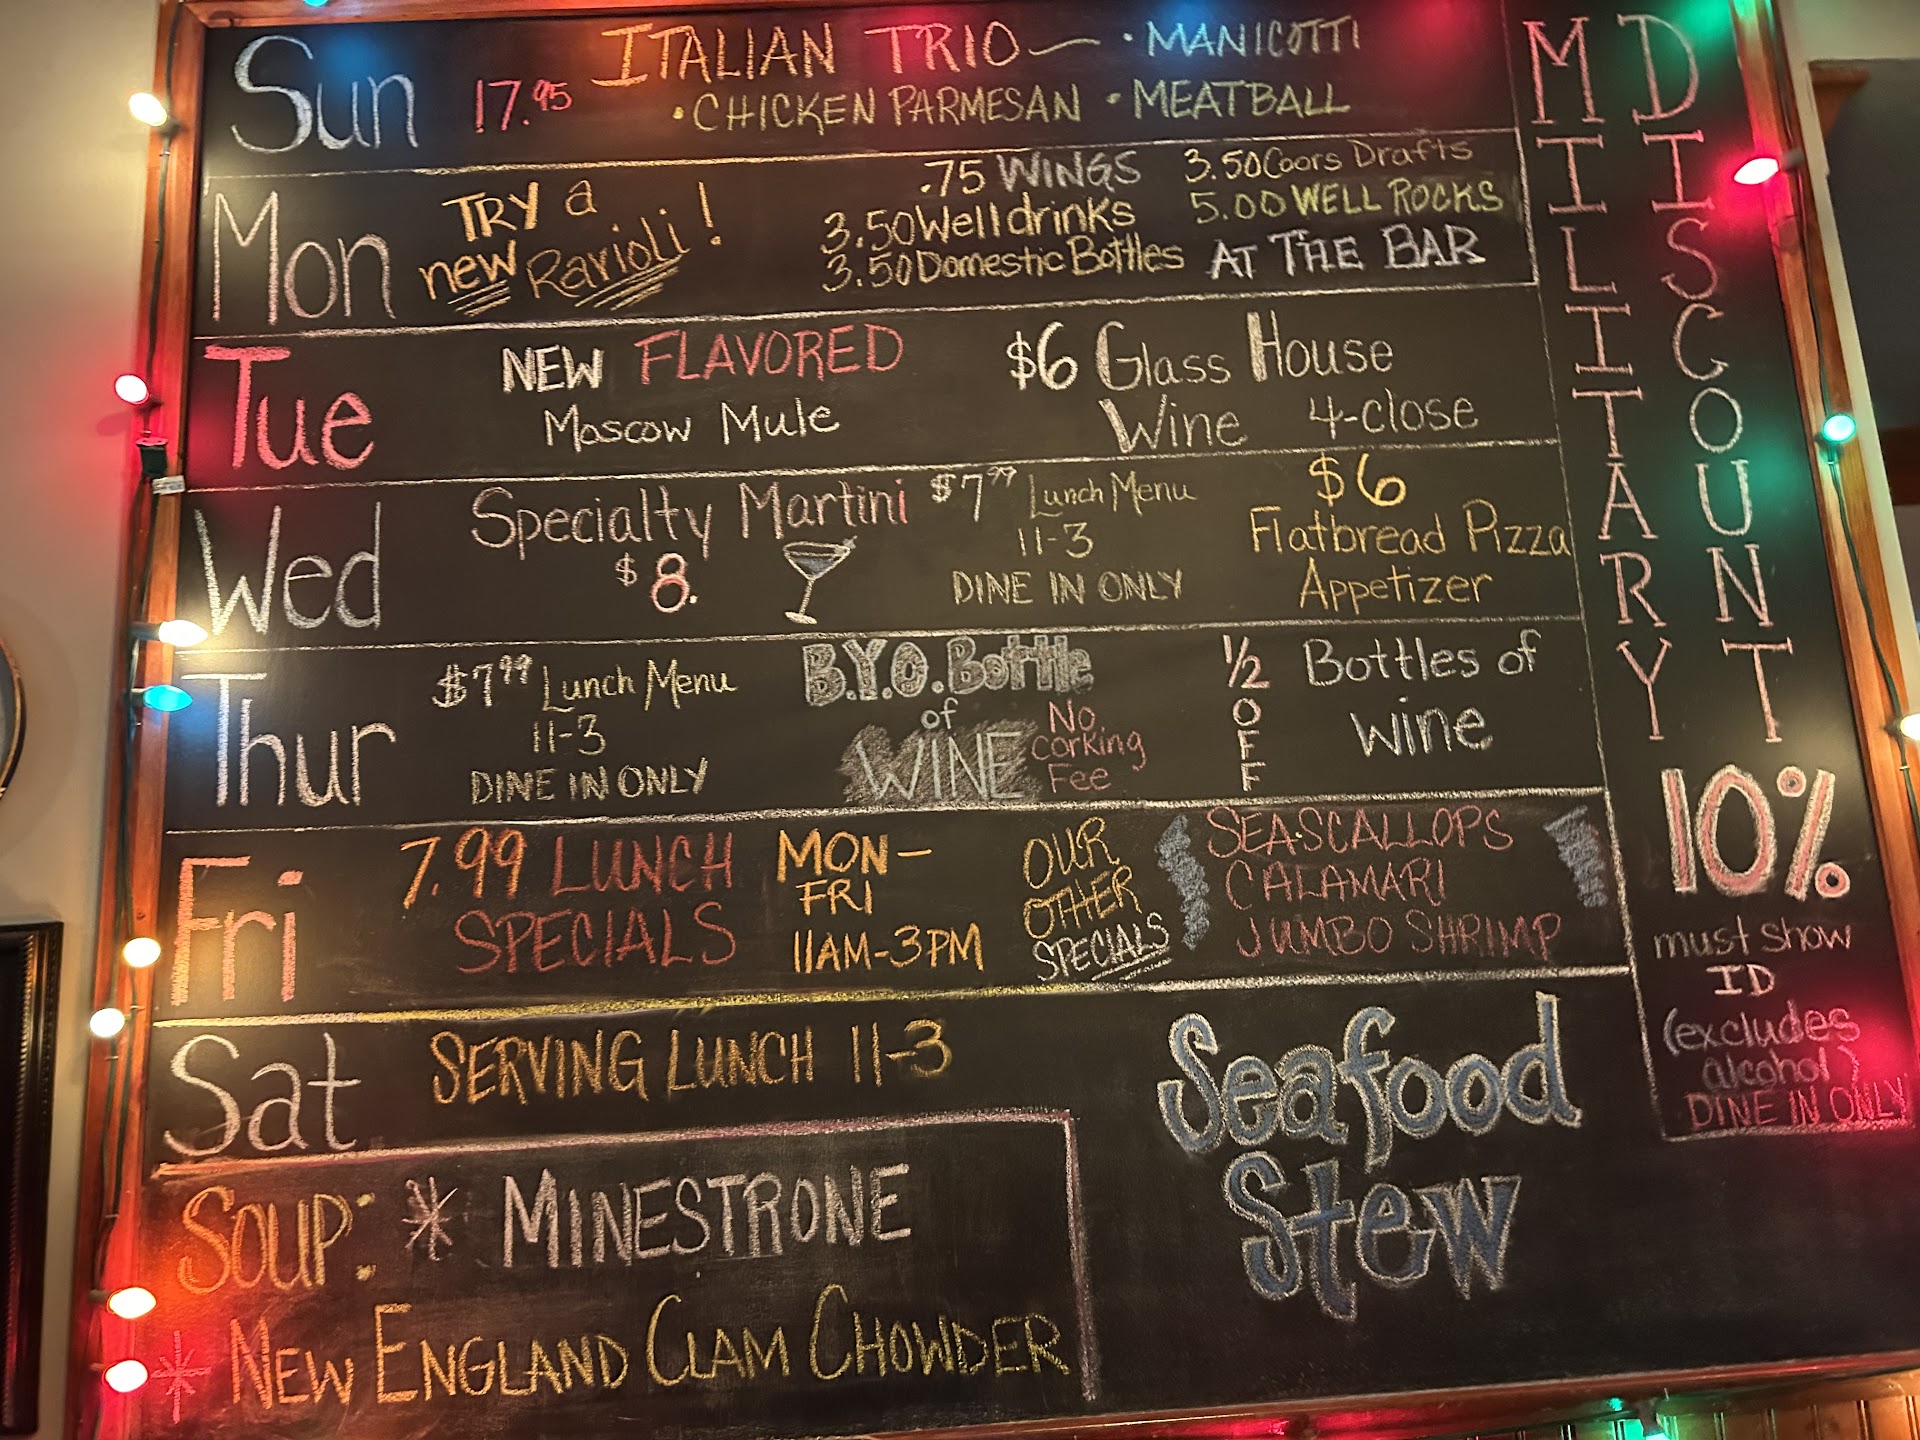 Sun 17.95 ITALIAN TRIO — · MANICOTTI
· CHICKEN PARMESAN · MEATBALL
Mon TRY a
new Ravioli!
.75 WINGS
3.50 Well drinks
3.50 Domestic Bottles
3.50 Coors Drafts
5.00 WELL ROCKS
AT THE BAR
Tue NEW FLAVORED
Moscow Mule
$6 Glass House
Wine 4-close
Wed Specialty Martini
$8.
$7.99 Lunch Menu
11-3
DINE IN ONLY
$6
Flatbread Pizza
Appetizer
Thur $7.99 Lunch Menu
11-3
DINE IN ONLY
B.Y.O. Bottle
of
WINE
No
corking
Fee
1/2
OFF
Bottles of
wine
Fri 7.99 LUNCH
SPECIALS
MON-
FRI
11AM-3PM
OUR
OTHER
SPECIALS
SEA SCALLOPS
CALAMARI
JUMBO SHRIMP
Sat SERVING LUNCH 11-3
Seafood
Stew
SOUP: * MINESTRONE
* NEW ENGLAND CLAM CHOWDER
MILITARY
DISCOUNT
10%
must show
ID
(excludes
alcohol)
DINE IN ONLY